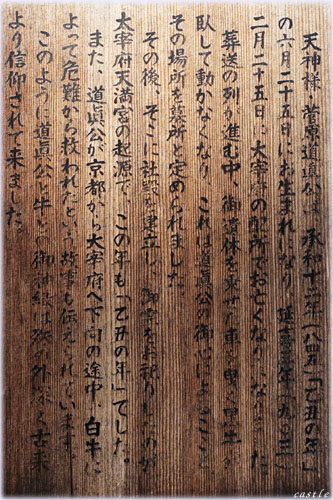 天神様、菅原道真公は、承和十二年(八四五)「乙丑の年」
の六月二十五日にお生まれになり、延喜三年(九〇三)
二月二十五日に大宰府の配所でお亡くなりになりました
葬送の列が進む中、御遺体を乗せた車を曳く
臥して動かなくなり、これは道眞公の御心によること
その場所を墓所と定められました。
その後、そこに社殿を建立し、御霊をお祀りしたのが
太宰府天満宮の起源で、この年も「乙丑の年」でした。
また、道眞公が京都から大宰府へ下向の途中、白牛に
よって危難から救われたという故事も伝えられています。
このように道眞公と牛との御神縁は殊の外深く古来
より信仰されて来ました。
castle